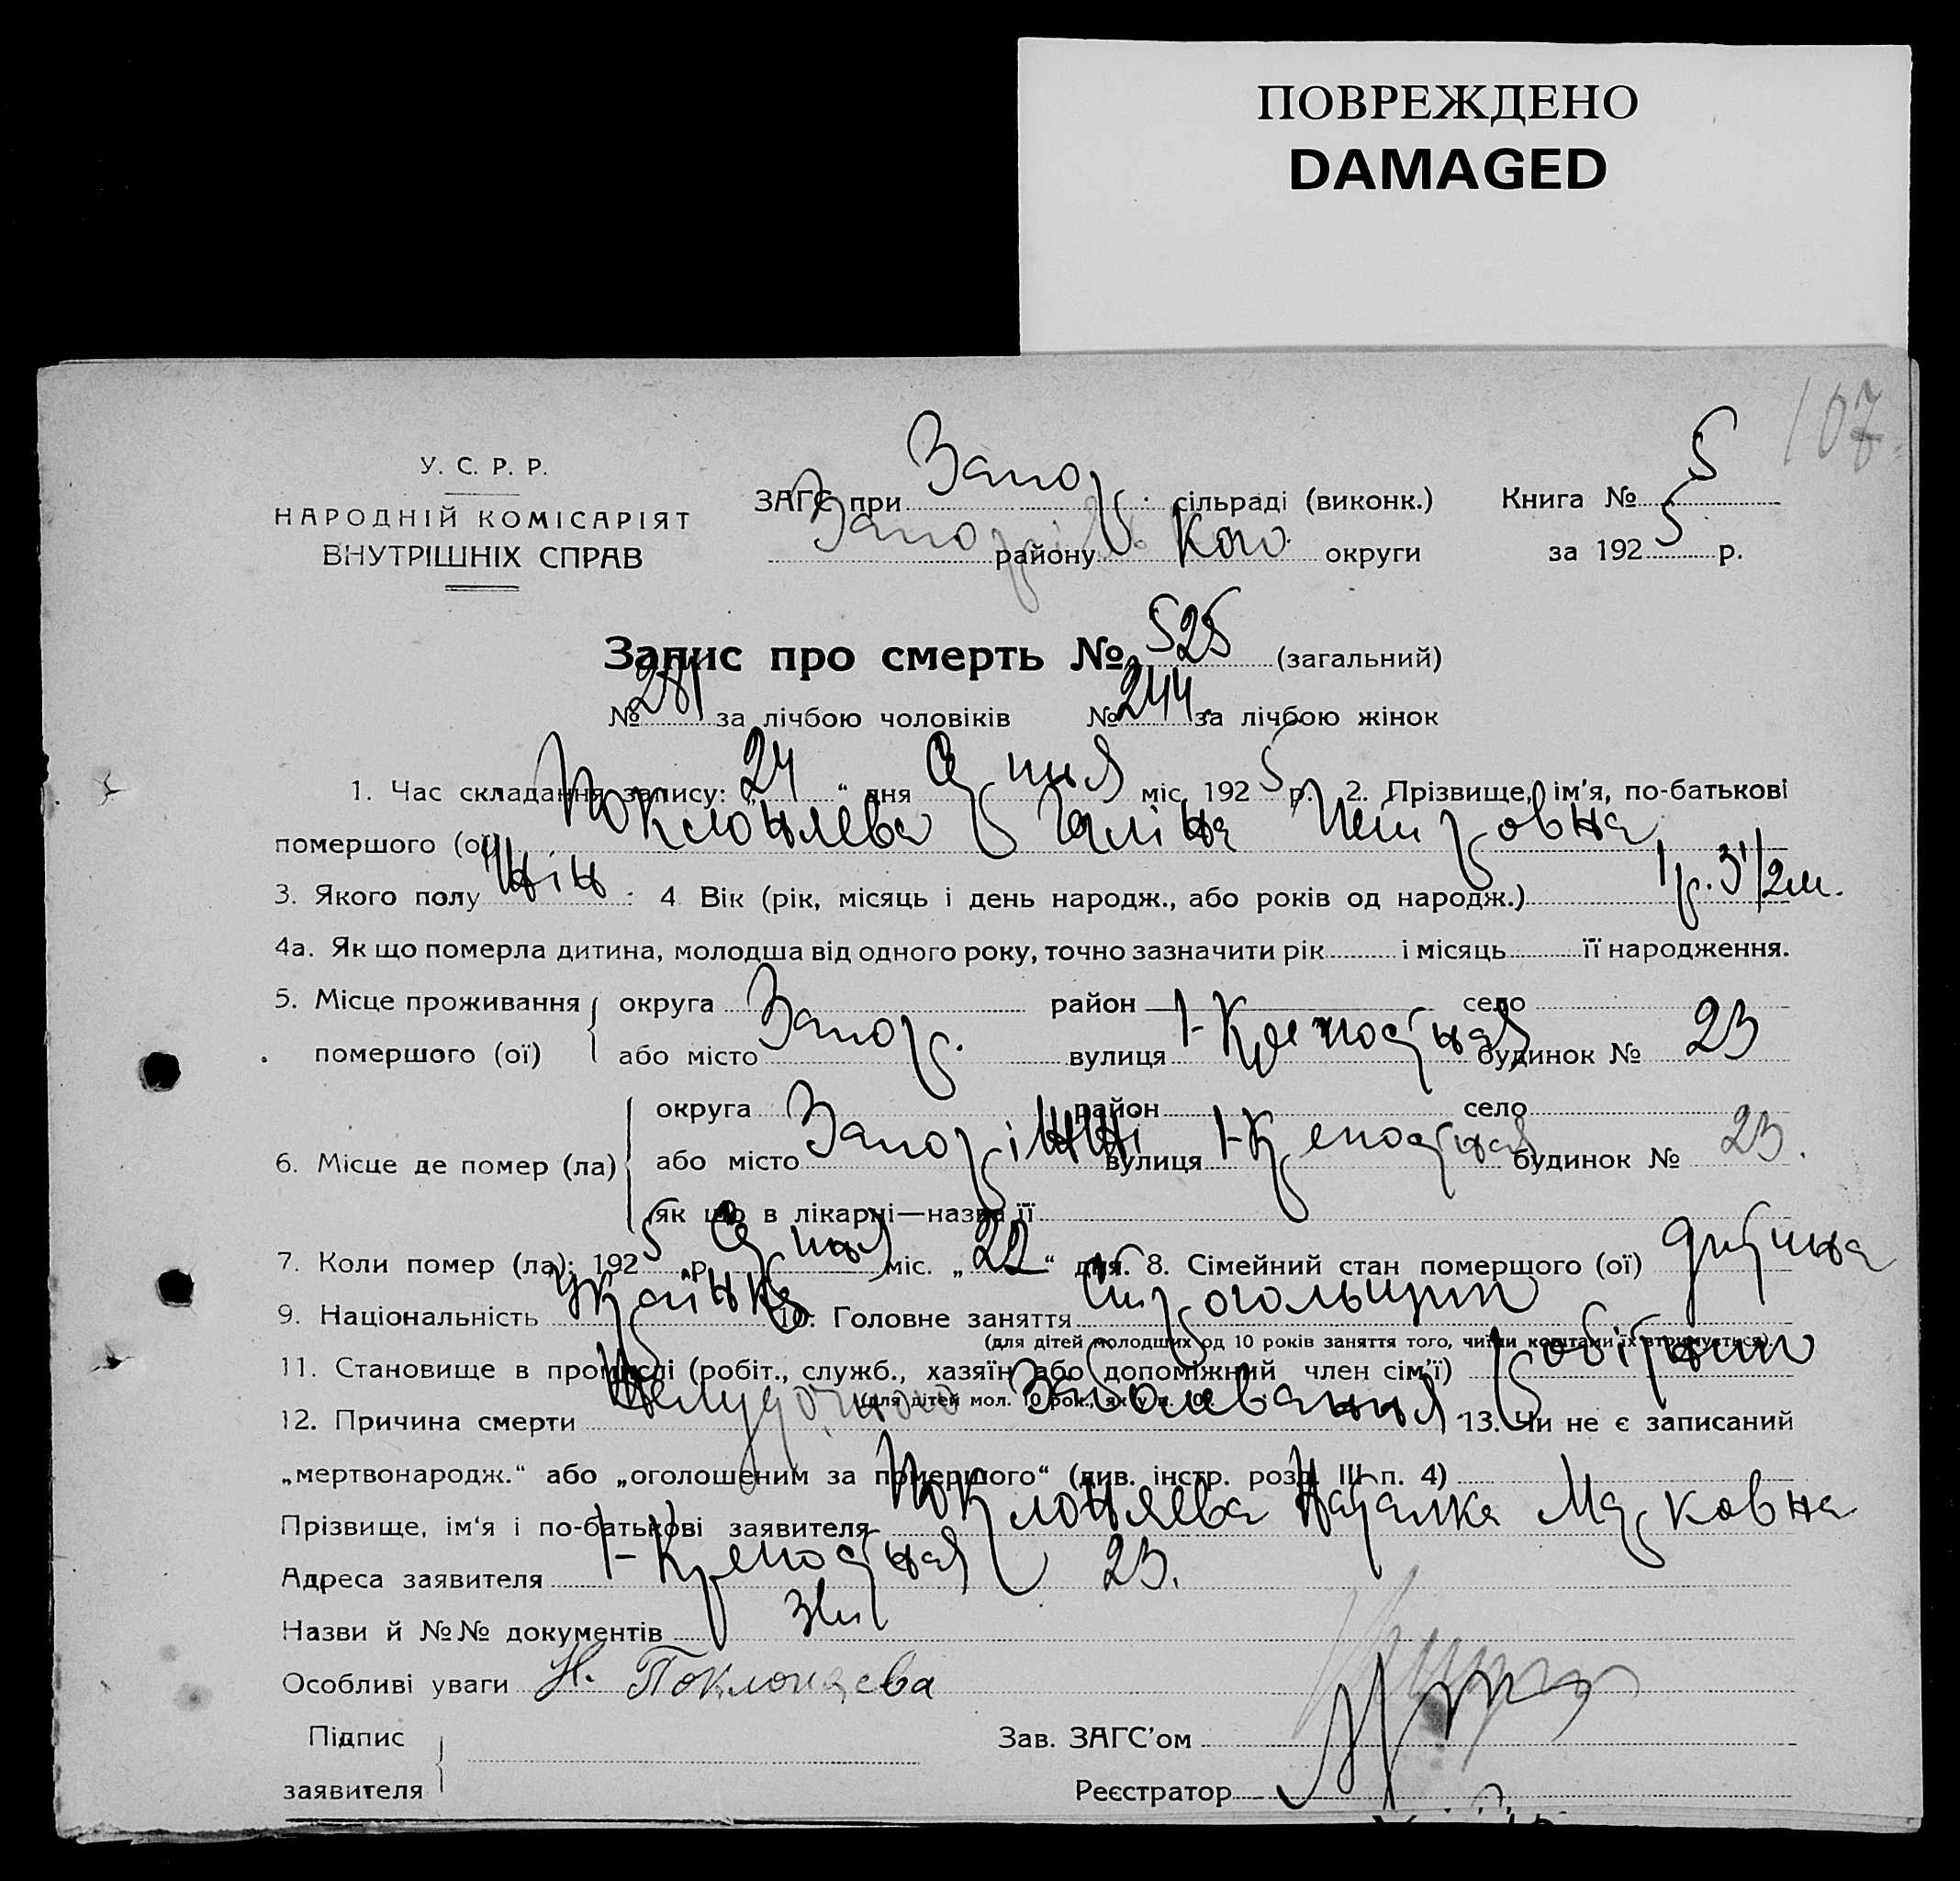 ПОВРЕЖДЕНО
DAMAGED
107
У. С. Р. Р.
НАРОДНІЙ КОМІСАРІЯТ
ВНУТРІШНІХ СПРАВ
ЗАГС при Запор. сільраді (виконк.) Книга № 5
району Кого округи за 192 5 р.
Запис про смерть № 525 (загальний)
№ 281 за лічбою чоловіків № 244 за лічбою жінок
1. Час складання запису: „ 24 “ дня міс. 192 5 р. 2. Прізвище, ім'я, по-батькові
помершого (ої) Поклоняева Галіна Петровна
3. Якого полу жін : 4 Вік (рік, місяць і день народж., або років од народж.) 1 р. 3 1/2 м.
4а. Як що померла дитина, молодша від одного року, точно зазначити рік і місяць її народження.
5. Місце проживання округа район село
помершого (ої) або місто Запор. вулиця 1-Крепостная будинок № 23
округа район село
6. Місце де помер (ла) або місто Запоріжжі вулиця 1-Крепостная будинок № 23.
як що в лікарні—назва її
7. Коли помер (ла): 192 5 р. міс. „ 22 “ дня. 8. Сімейний стан помершого (ої) дитина
9. Національність Українка 10. Головне заняття
(для дітей молодших од 10 років заняття того, чиїми коштами їх втримується).
11. Становище в промислі (робіт., служб., хазяїн або допоміжний член сім'ї) робітник
(для дітей мол. 10 рок., як у п. 10).
12. Причина смерти Желудочного Заболевания 13. Чи не є записаний
„мертвонародж.“ або „оголошеним за помершого“ (див. інстр. розд. III п. 4)
Прізвище, ім'я і по-батькові заявителя Поклоняева Наталка Марковна
Адреса заявителя 1-Крепостная 23.
Назви й №№ документів
Особливі уваги Н. Поклоняева
Підпис Зав. ЗАГС'ом
заявителя Реєстратор